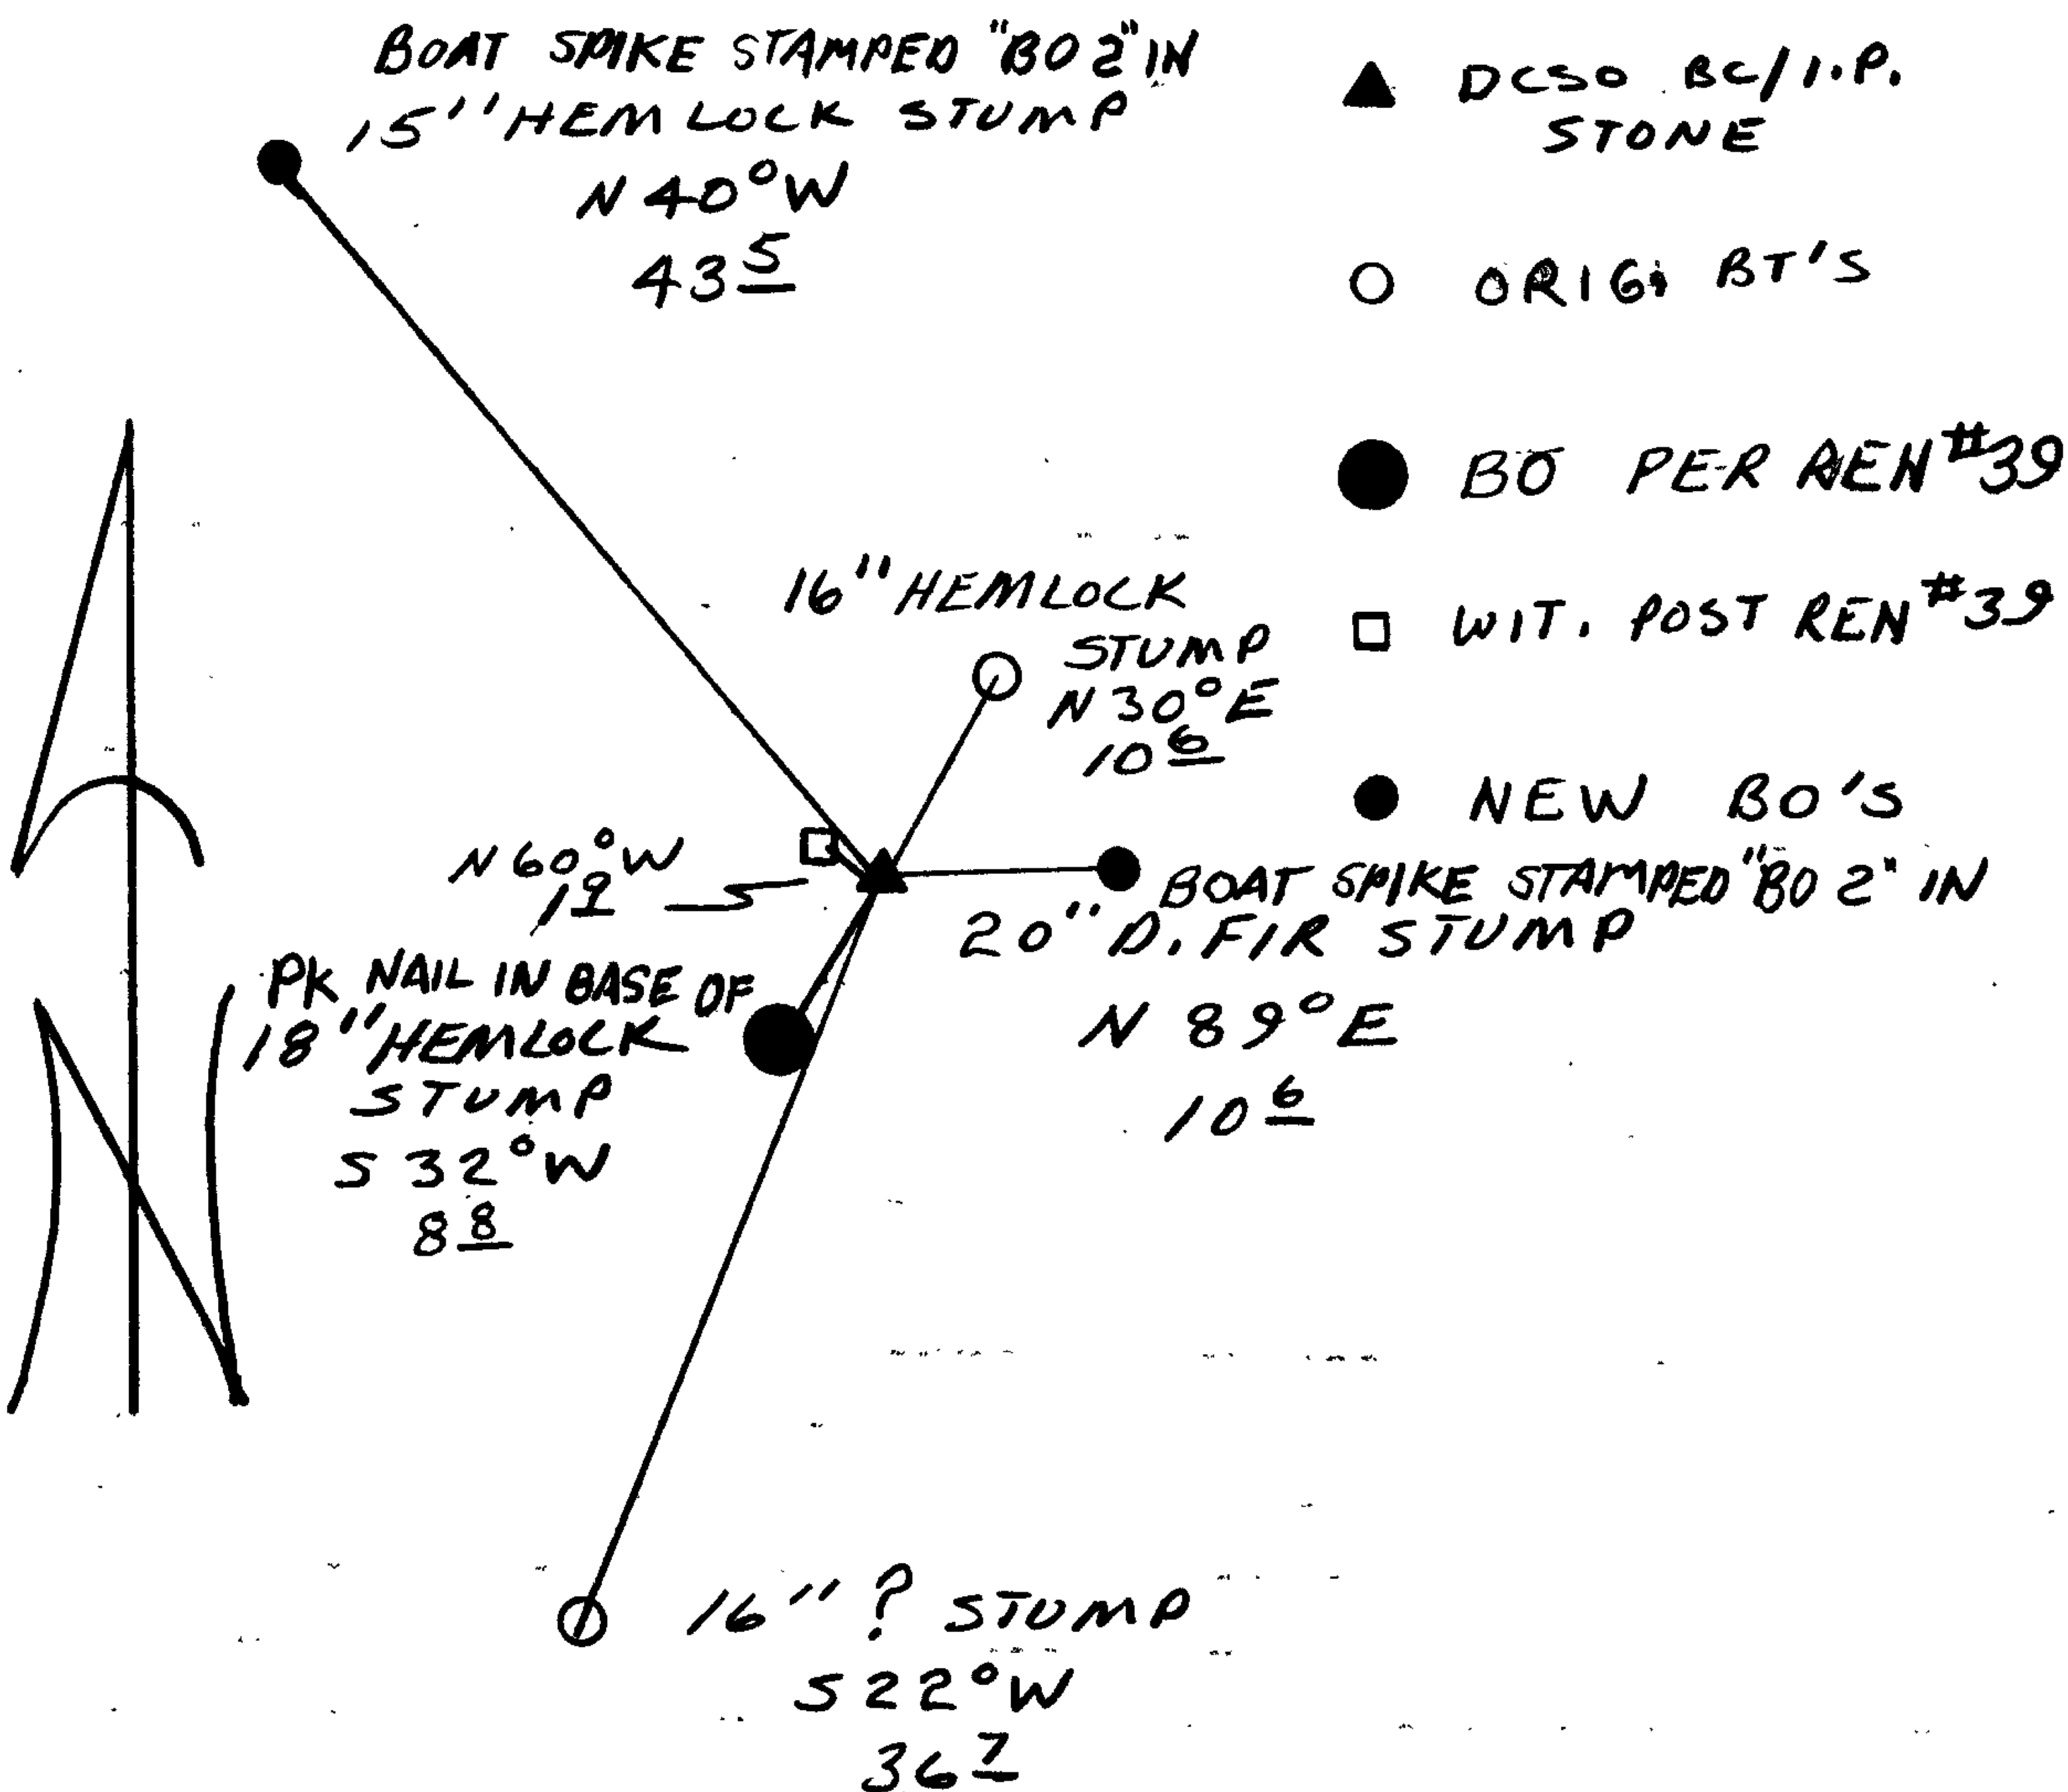 BOAT SPIKE STAMPED "BO 2" IN
15" HEMLOCK STUMP
N 40° W
43 5
DCSO BC/I.P.
STONE
ORIG. BT'S
BO PER REN #39
WIT. POST REN #39
NEW BO'S
16" HEMLOCK
STUMP
N 30° E
10 6
N 60° W
1 9
BOAT SPIKE STAMPED "BO 2" IN
20" D. FIR STUMP
N 89° E
10 6
PK NAIL IN BASE OF
18" HEMLOCK
STUMP
S 32° W
8 8
N
16" ? STUMP
S 22° W
36 7